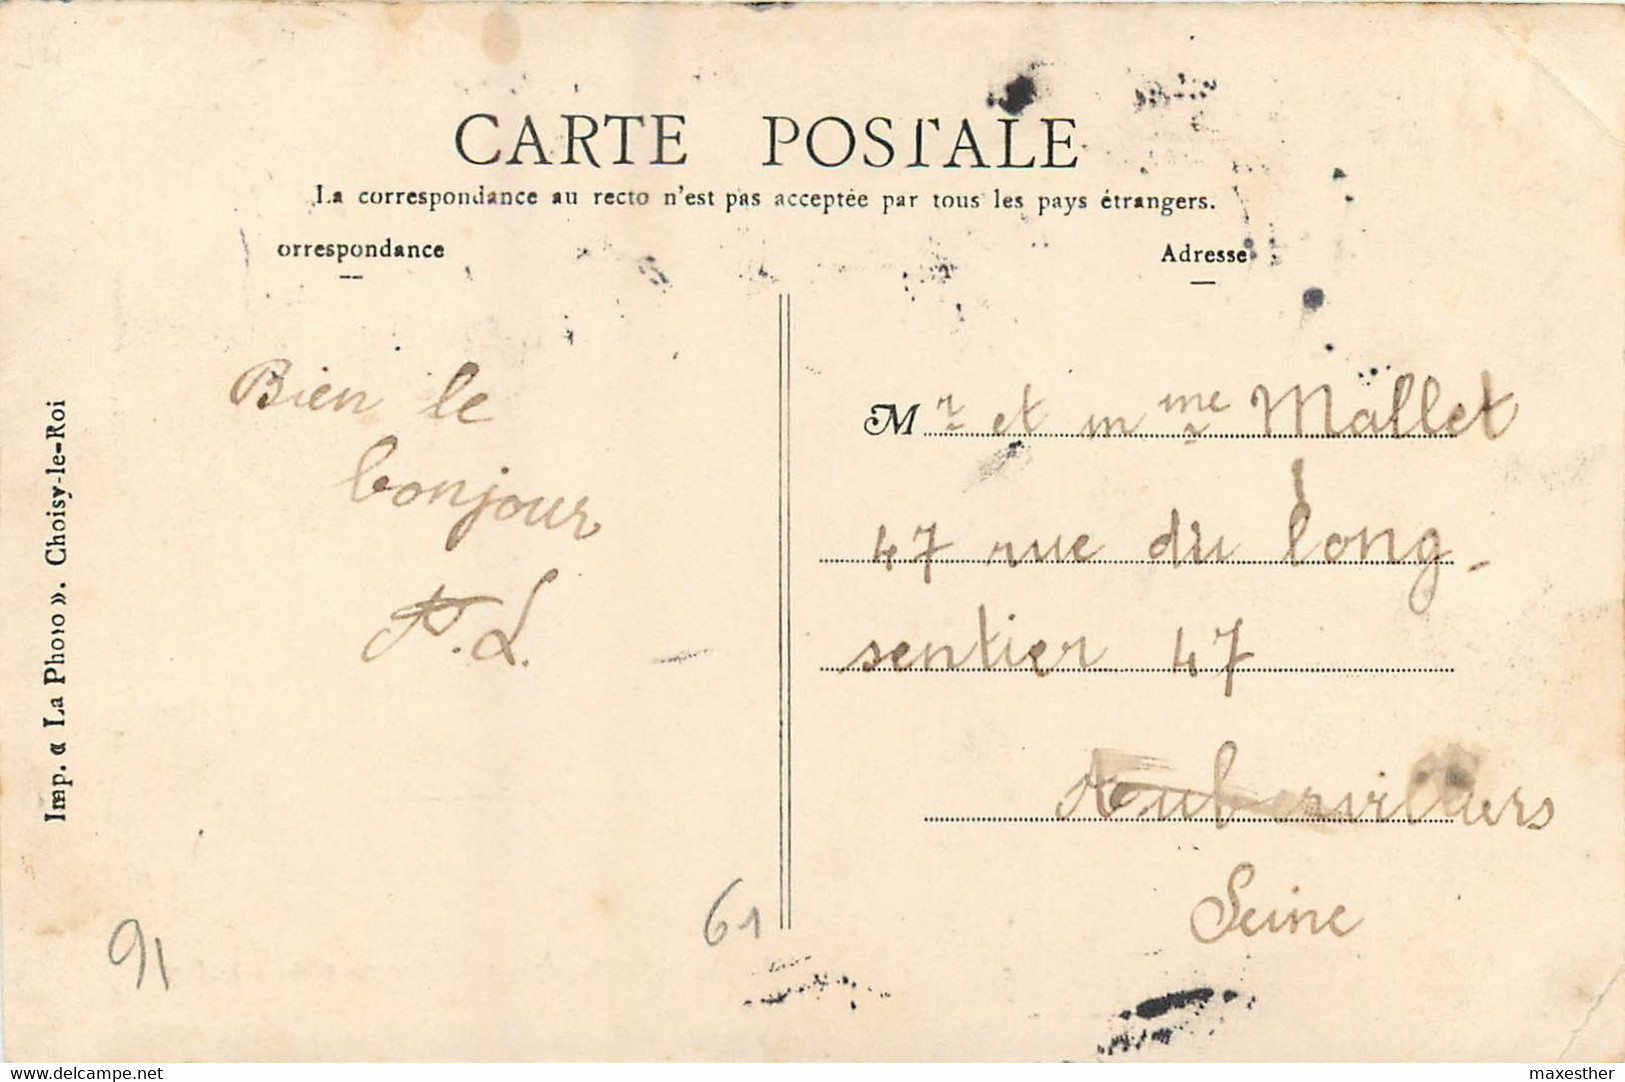 CARTE POSTALE
La correspondance au recto n'est pas acceptée par tous les pays étrangers.
orrespondance
Adresse
Bien le
bonjour
P. L.
Mr et mme Mallet
47 rue du long-
sentier 47
Aubervilliers
Seine
Imp. « La Photo ». Choisy-le-Roi
91
61
www.delcampe.net
maxesther